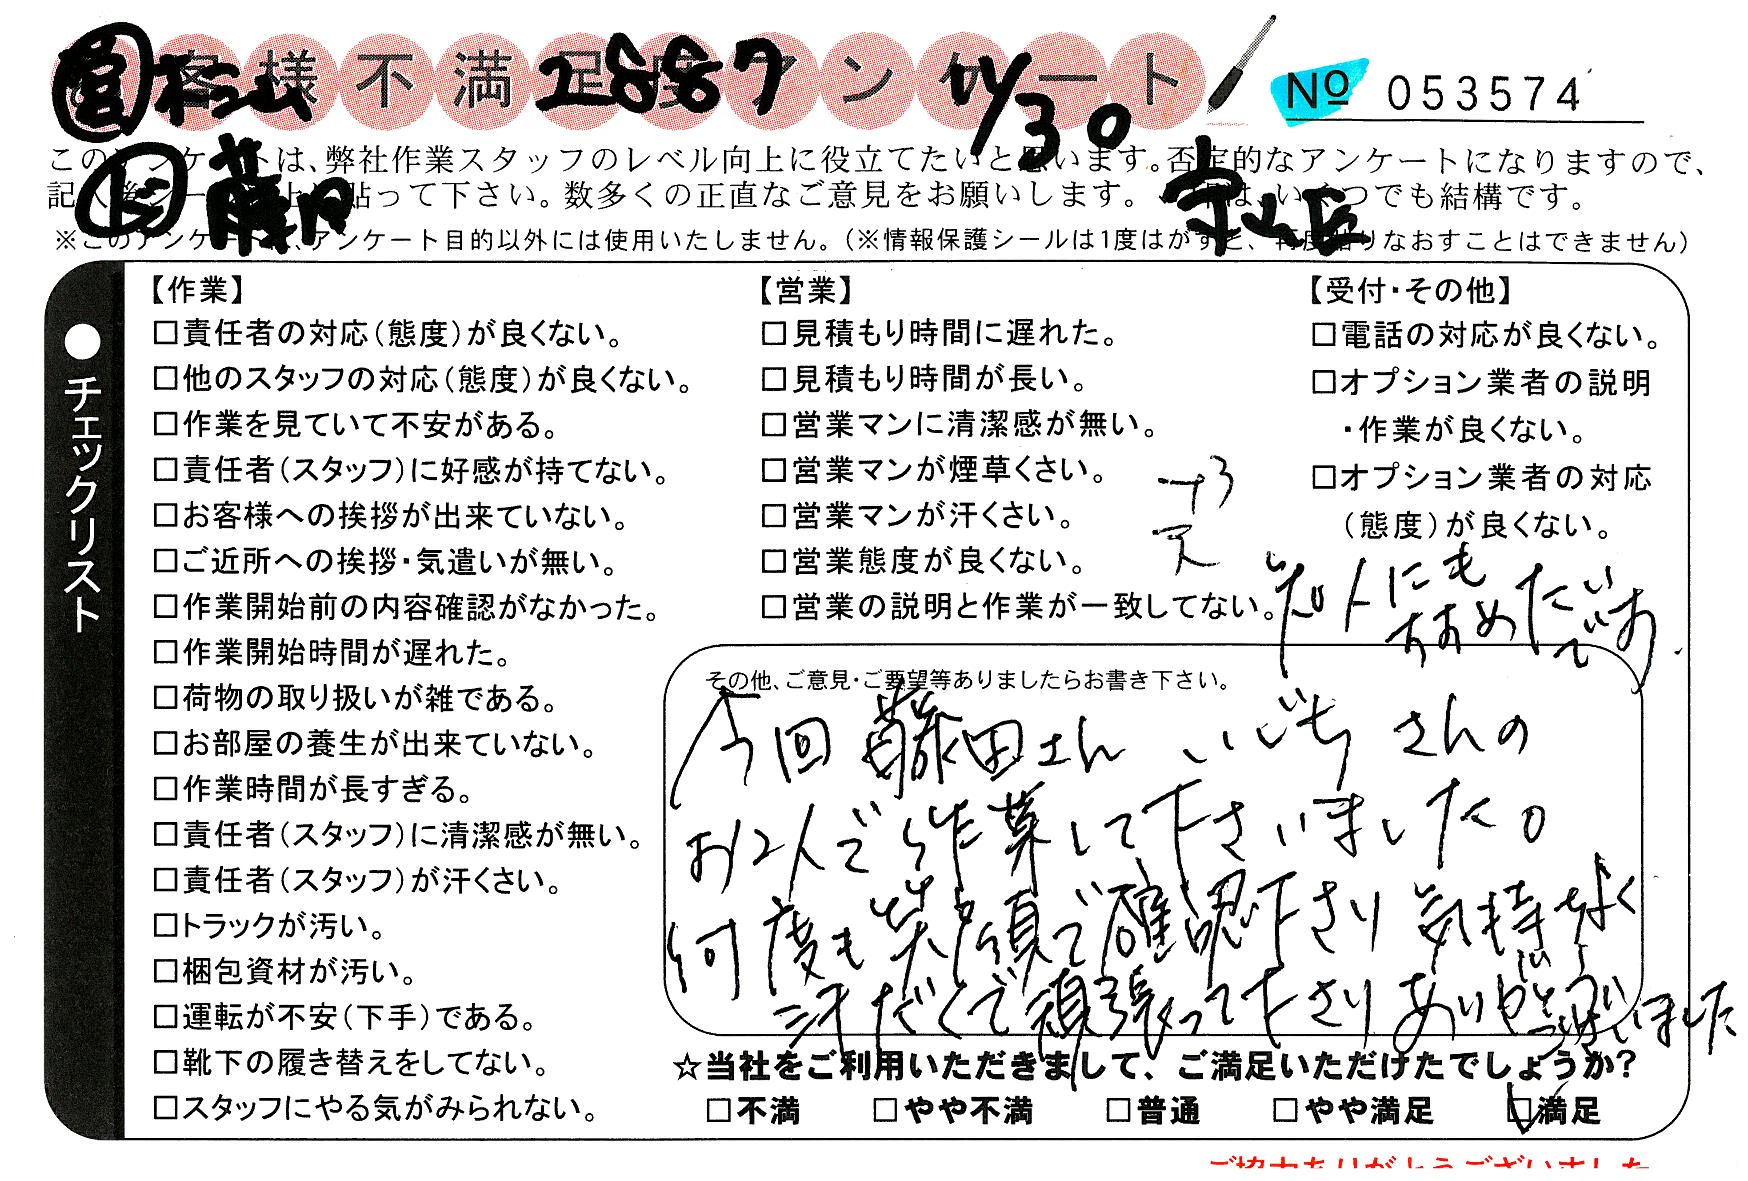 お客様不満足度アンケート
営 2887 11/30
No 053574
このアンケートは、弊社作業スタッフのレベル向上に役立てたいと思います。否定的なアンケートになりますので、
記入後シールを上に貼って下さい。数多くの正直なご意見をお願いします。 は、いくつでも結構です。
藤田
※このアンケートは、アンケート目的以外には使用いたしません。(※情報保護シールは1度はがすと、再度貼りなおすことはできません)
●チェックリスト
【作業】
□責任者の対応(態度)が良くない。
□他のスタッフの対応(態度)が良くない。
□作業を見ていて不安がある。
□責任者(スタッフ)に好感が持てない。
□お客様への挨拶が出来ていない。
□ご近所への挨拶・気遣いが無い。
□作業開始前の内容確認がなかった。
□作業開始時間が遅れた。
□荷物の取り扱いが雑である。
□お部屋の養生が出来ていない。
□作業時間が長すぎる。
□責任者(スタッフ)に清潔感が無い。
□責任者(スタッフ)が汗くさい。
□トラックが汚い。
□梱包資材が汚い。
□運転が不安(下手)である。
□靴下の履き替えをしてない。
□スタッフにやる気がみられない。
【営業】
□見積もり時間に遅れた。
□見積もり時間が長い。
□営業マンに清潔感が無い。
□営業マンが煙草くさい。
□営業マンが汗くさい。
□営業態度が良くない。
□営業の説明と作業が一致してない。
【受付・その他】
□電話の対応が良くない。
□オプション業者の説明
・作業が良くない。
□オプション業者の対応
(態度)が良くない。
知人にも
すすめたいです
その他、ご意見・ご要望等ありましたらお書き下さい。
今回 藤田さん いじちさんの
お2人で作業して下さいました。
何度も笑顔で確認下さり 気持ちよく
汗だくで頑張って下さりありがとうございました
☆当社をご利用いただきまして、ご満足いただけたでしょうか?
□不満 □やや不満 □普通 □やや満足 ☑満足
ご協力ありがとうございました